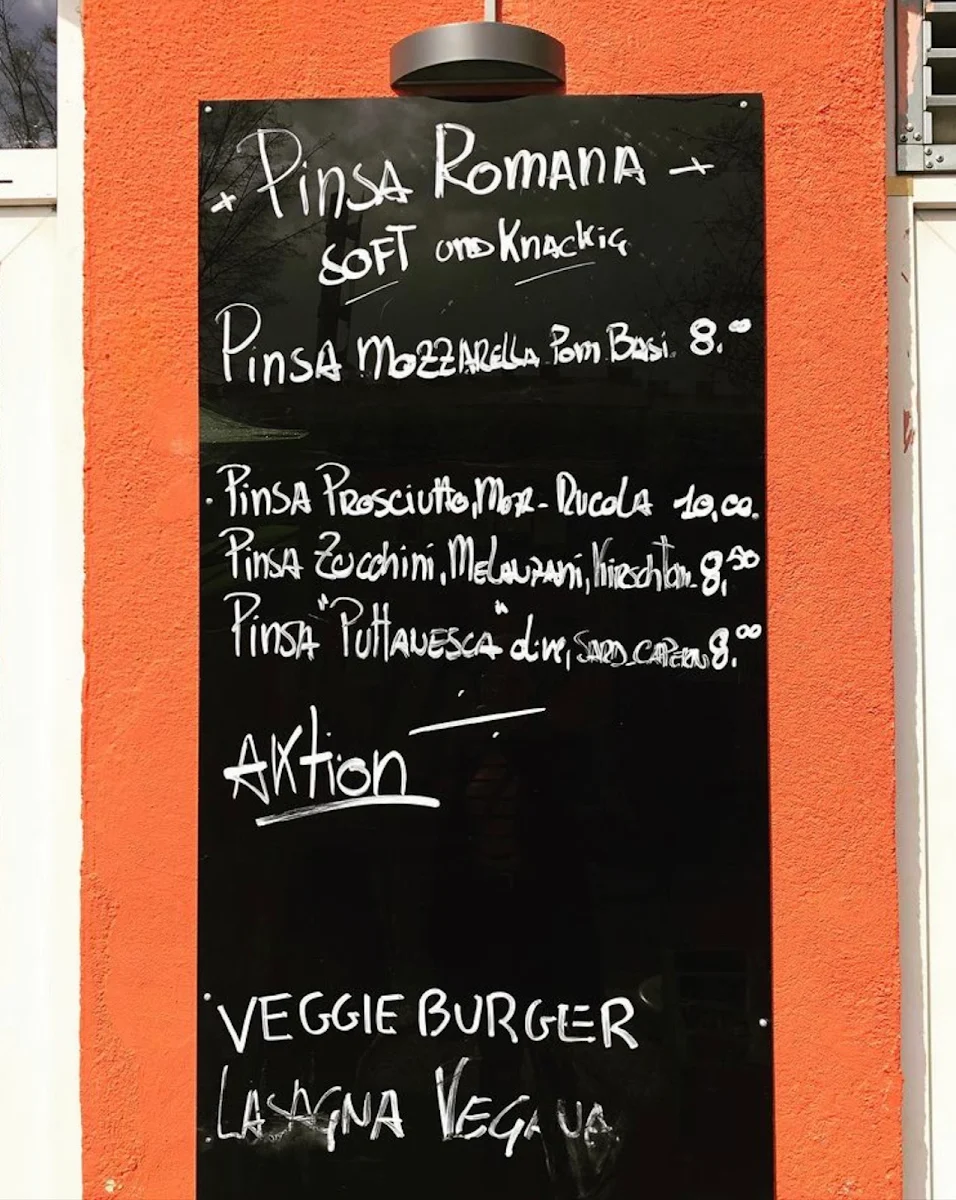 + Pinsa Romana +
SOFT und Knackig
Pinsa Mozzarella Pom Basi. 8.00
. Pinsa Prosciutto, Mozz - Rucola 10,00.
Pinsa Zucchini, Melanzani, Kirschtom. 8,50
Pinsa "Puttanesca" olive, SARD. CAPERN 8.00
AKtion
. VEGGIE BURGER
. LASAGNA VEGANA